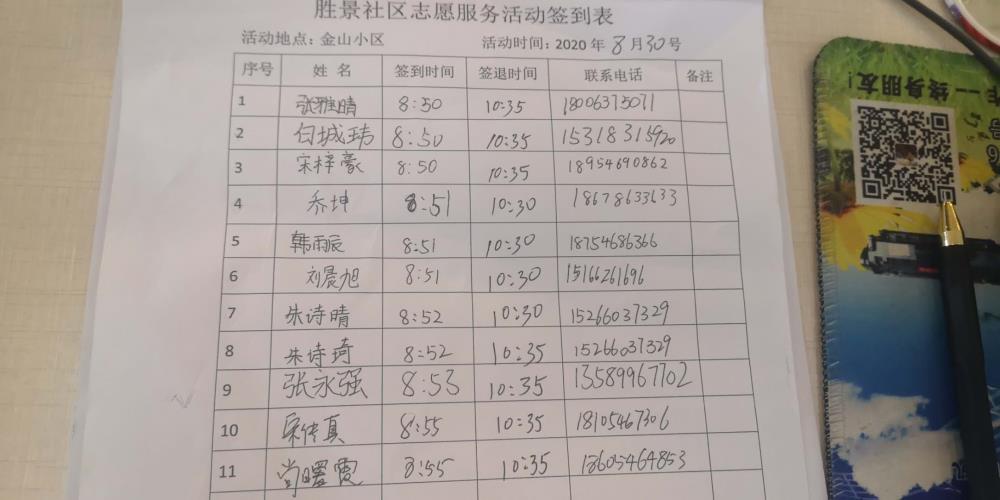 胜景社区志愿服务活动签到表
活动地点：金山小区 活动时间：2020年8月30号
序号 姓名 签到时间 签退时间 联系电话 备注
1 张雅晴 8:50 10:35 18006375071
2 白城玮 8:50 10:35 15318315920
3 宋梓豪 8:50 10:35 18954690862
4 乔坤 8:51 10:30 18678633633
5 韩雨辰 8:51 10:30 18754686366
6 刘晨旭 8:51 10:30 15166261696
7 朱诗晴 8:52 10:30 15266037329
8 朱诗琦 8:52 10:35 15266037329
9 张永强 8:53 10:35 13589967702
10 宋传真 8:55 10:35 18105467306
11 尚曙霞 8:55 10:35 13605464853
终身朋友！